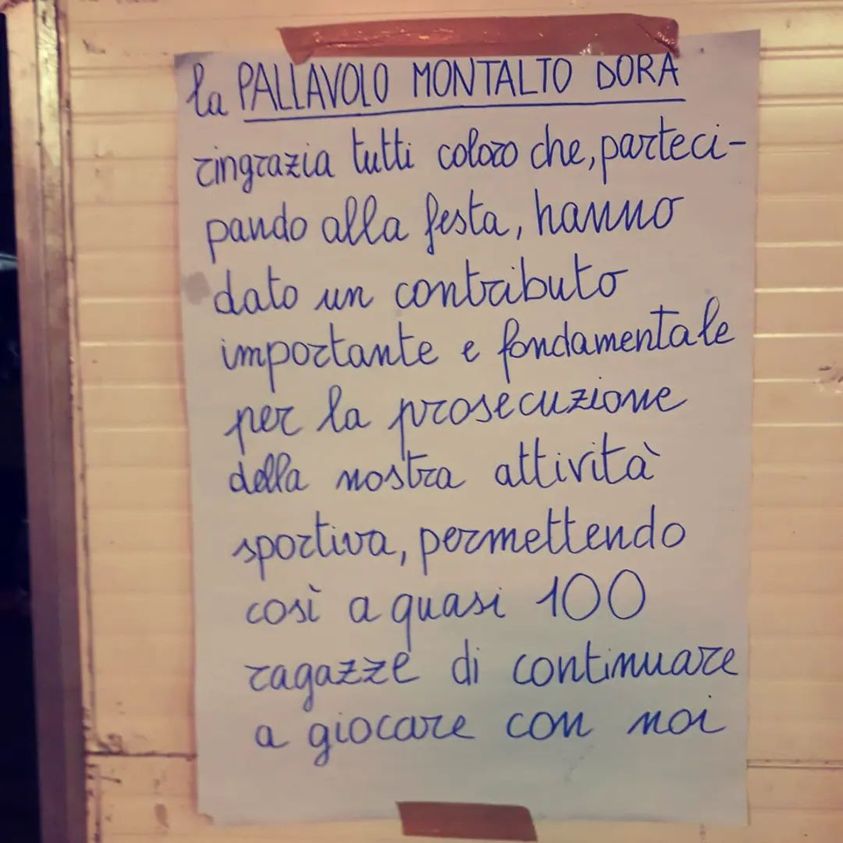 la PALLAVOLO MONTALTO DORA
ringrazia tutti coloro che, parteci-
pando alla festa, hanno
dato un contributo
importante e fondamentale
per la prosecuzione
della nostra attività
sportiva, permettendo
così a quasi 100
ragazze di continuare
a giocare con noi